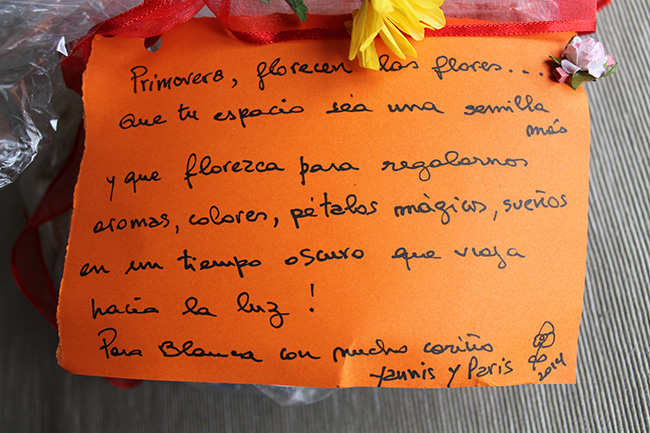 Primavera, florecen las flores...
que tu espacio sea una semilla
más
y que florezca para regalarnos
aromas, colores, pétalos mágicos, sueños
en un tiempo oscuro que viaja
hacia la luz!
Para Blanca con mucho cariño
Yannis y Paris
2014